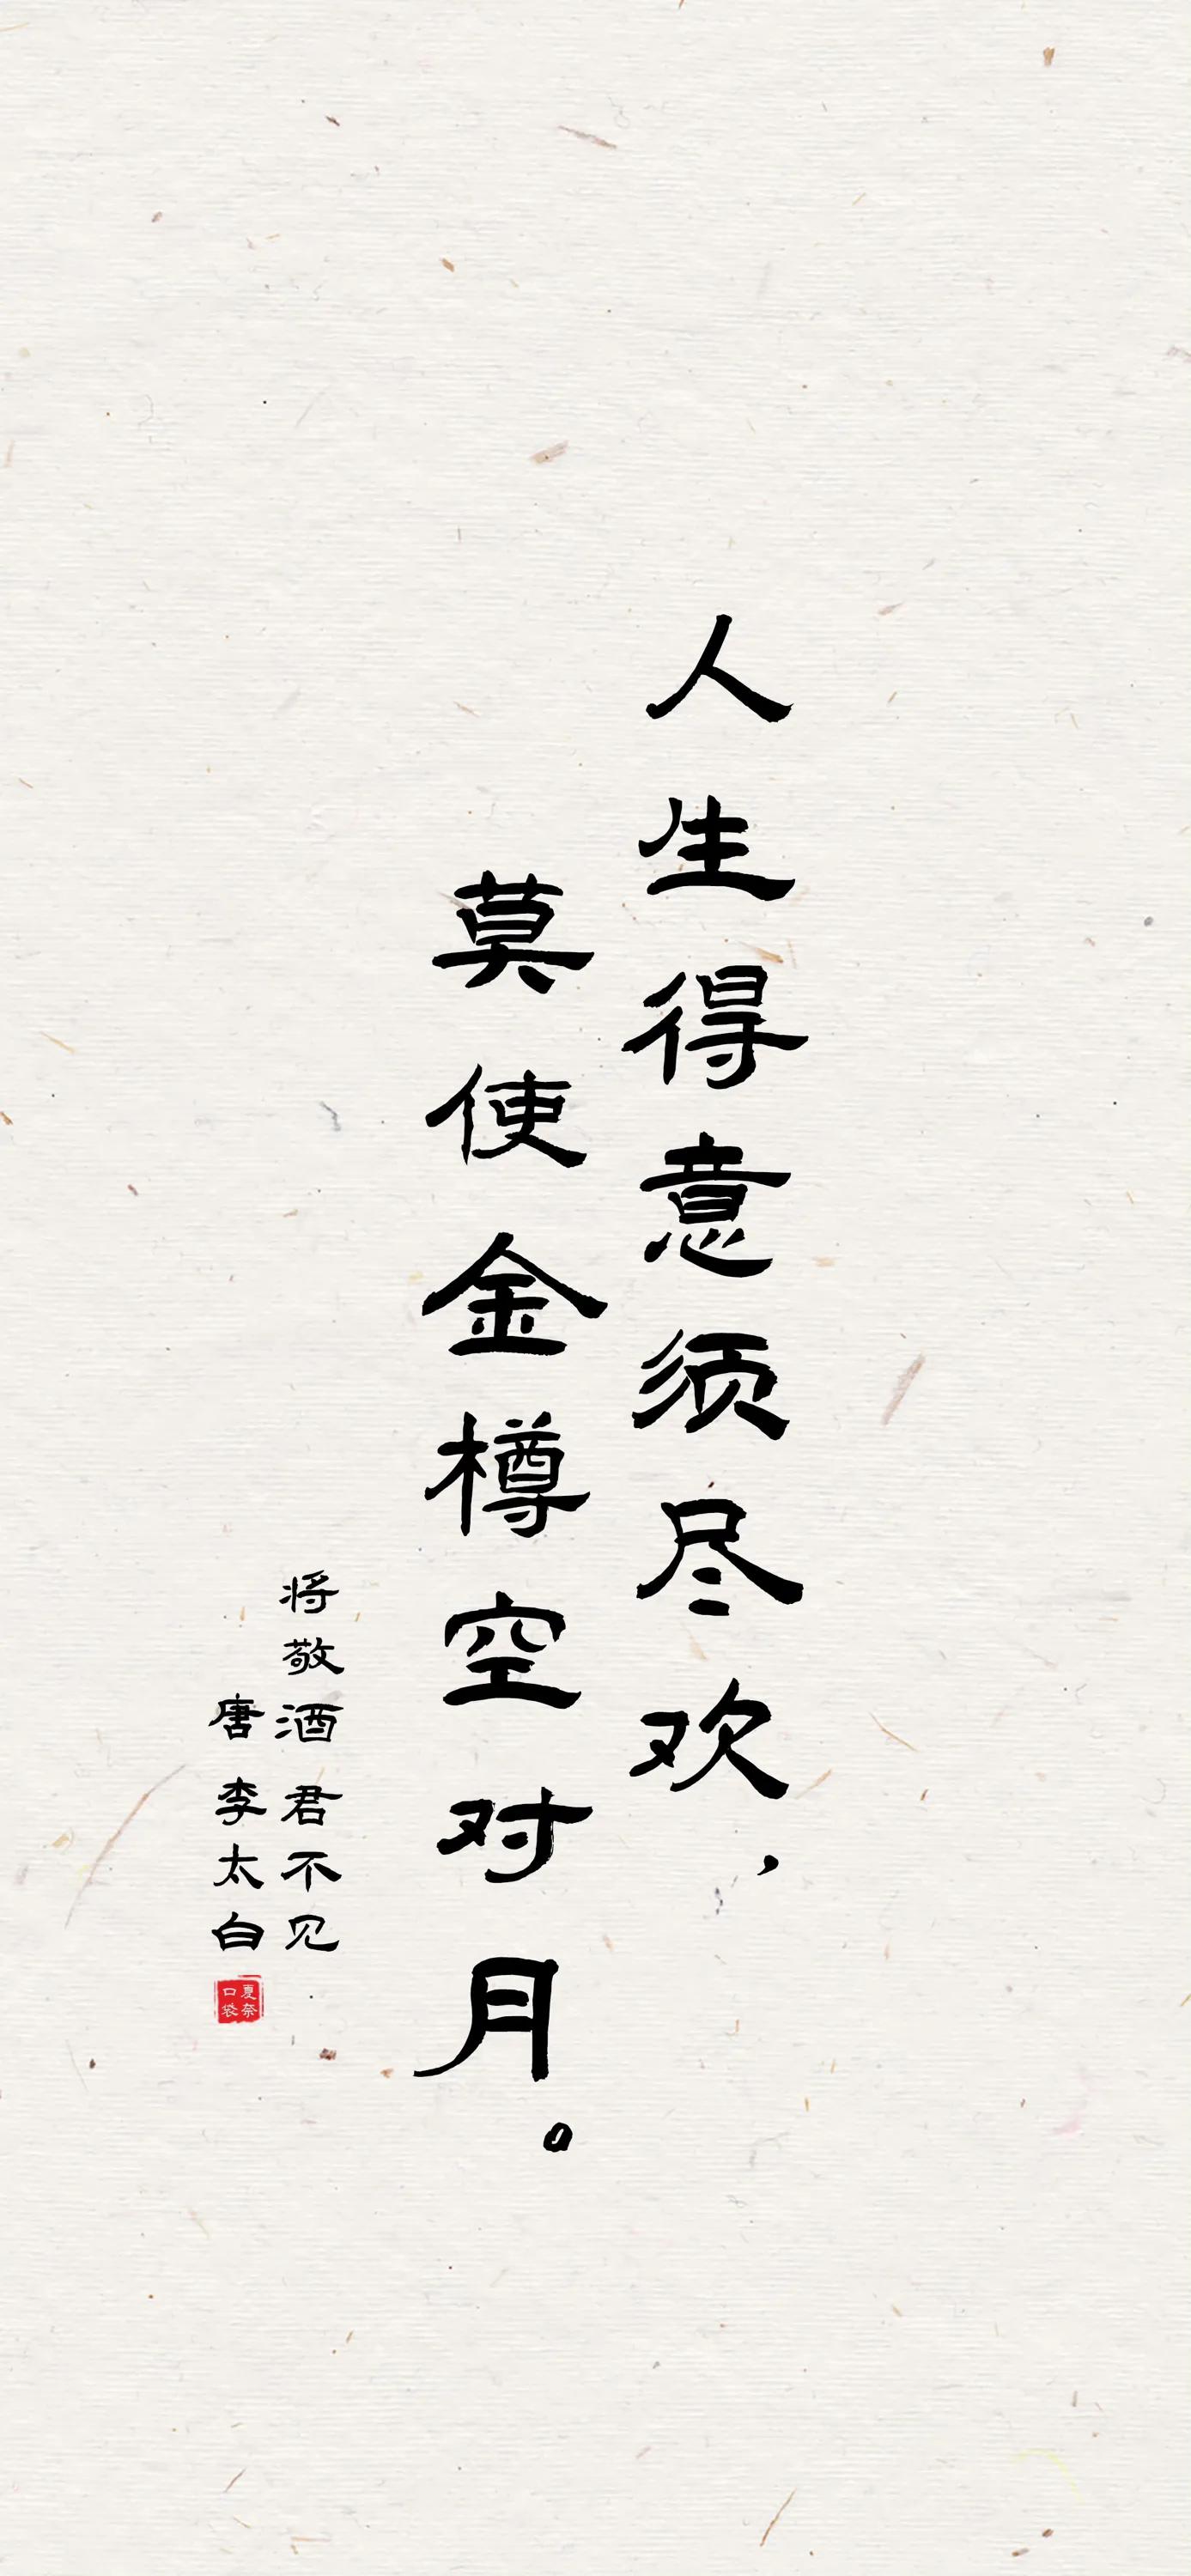 人生得意须尽欢，
莫使金樽空对月。
将敬酒 君不见
唐 李太白
夏奈
口袋